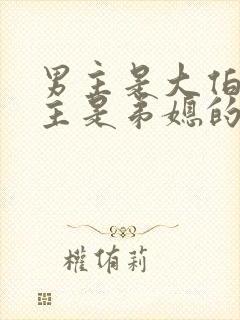 男主是大伯
主是弟媳的
權侑莉